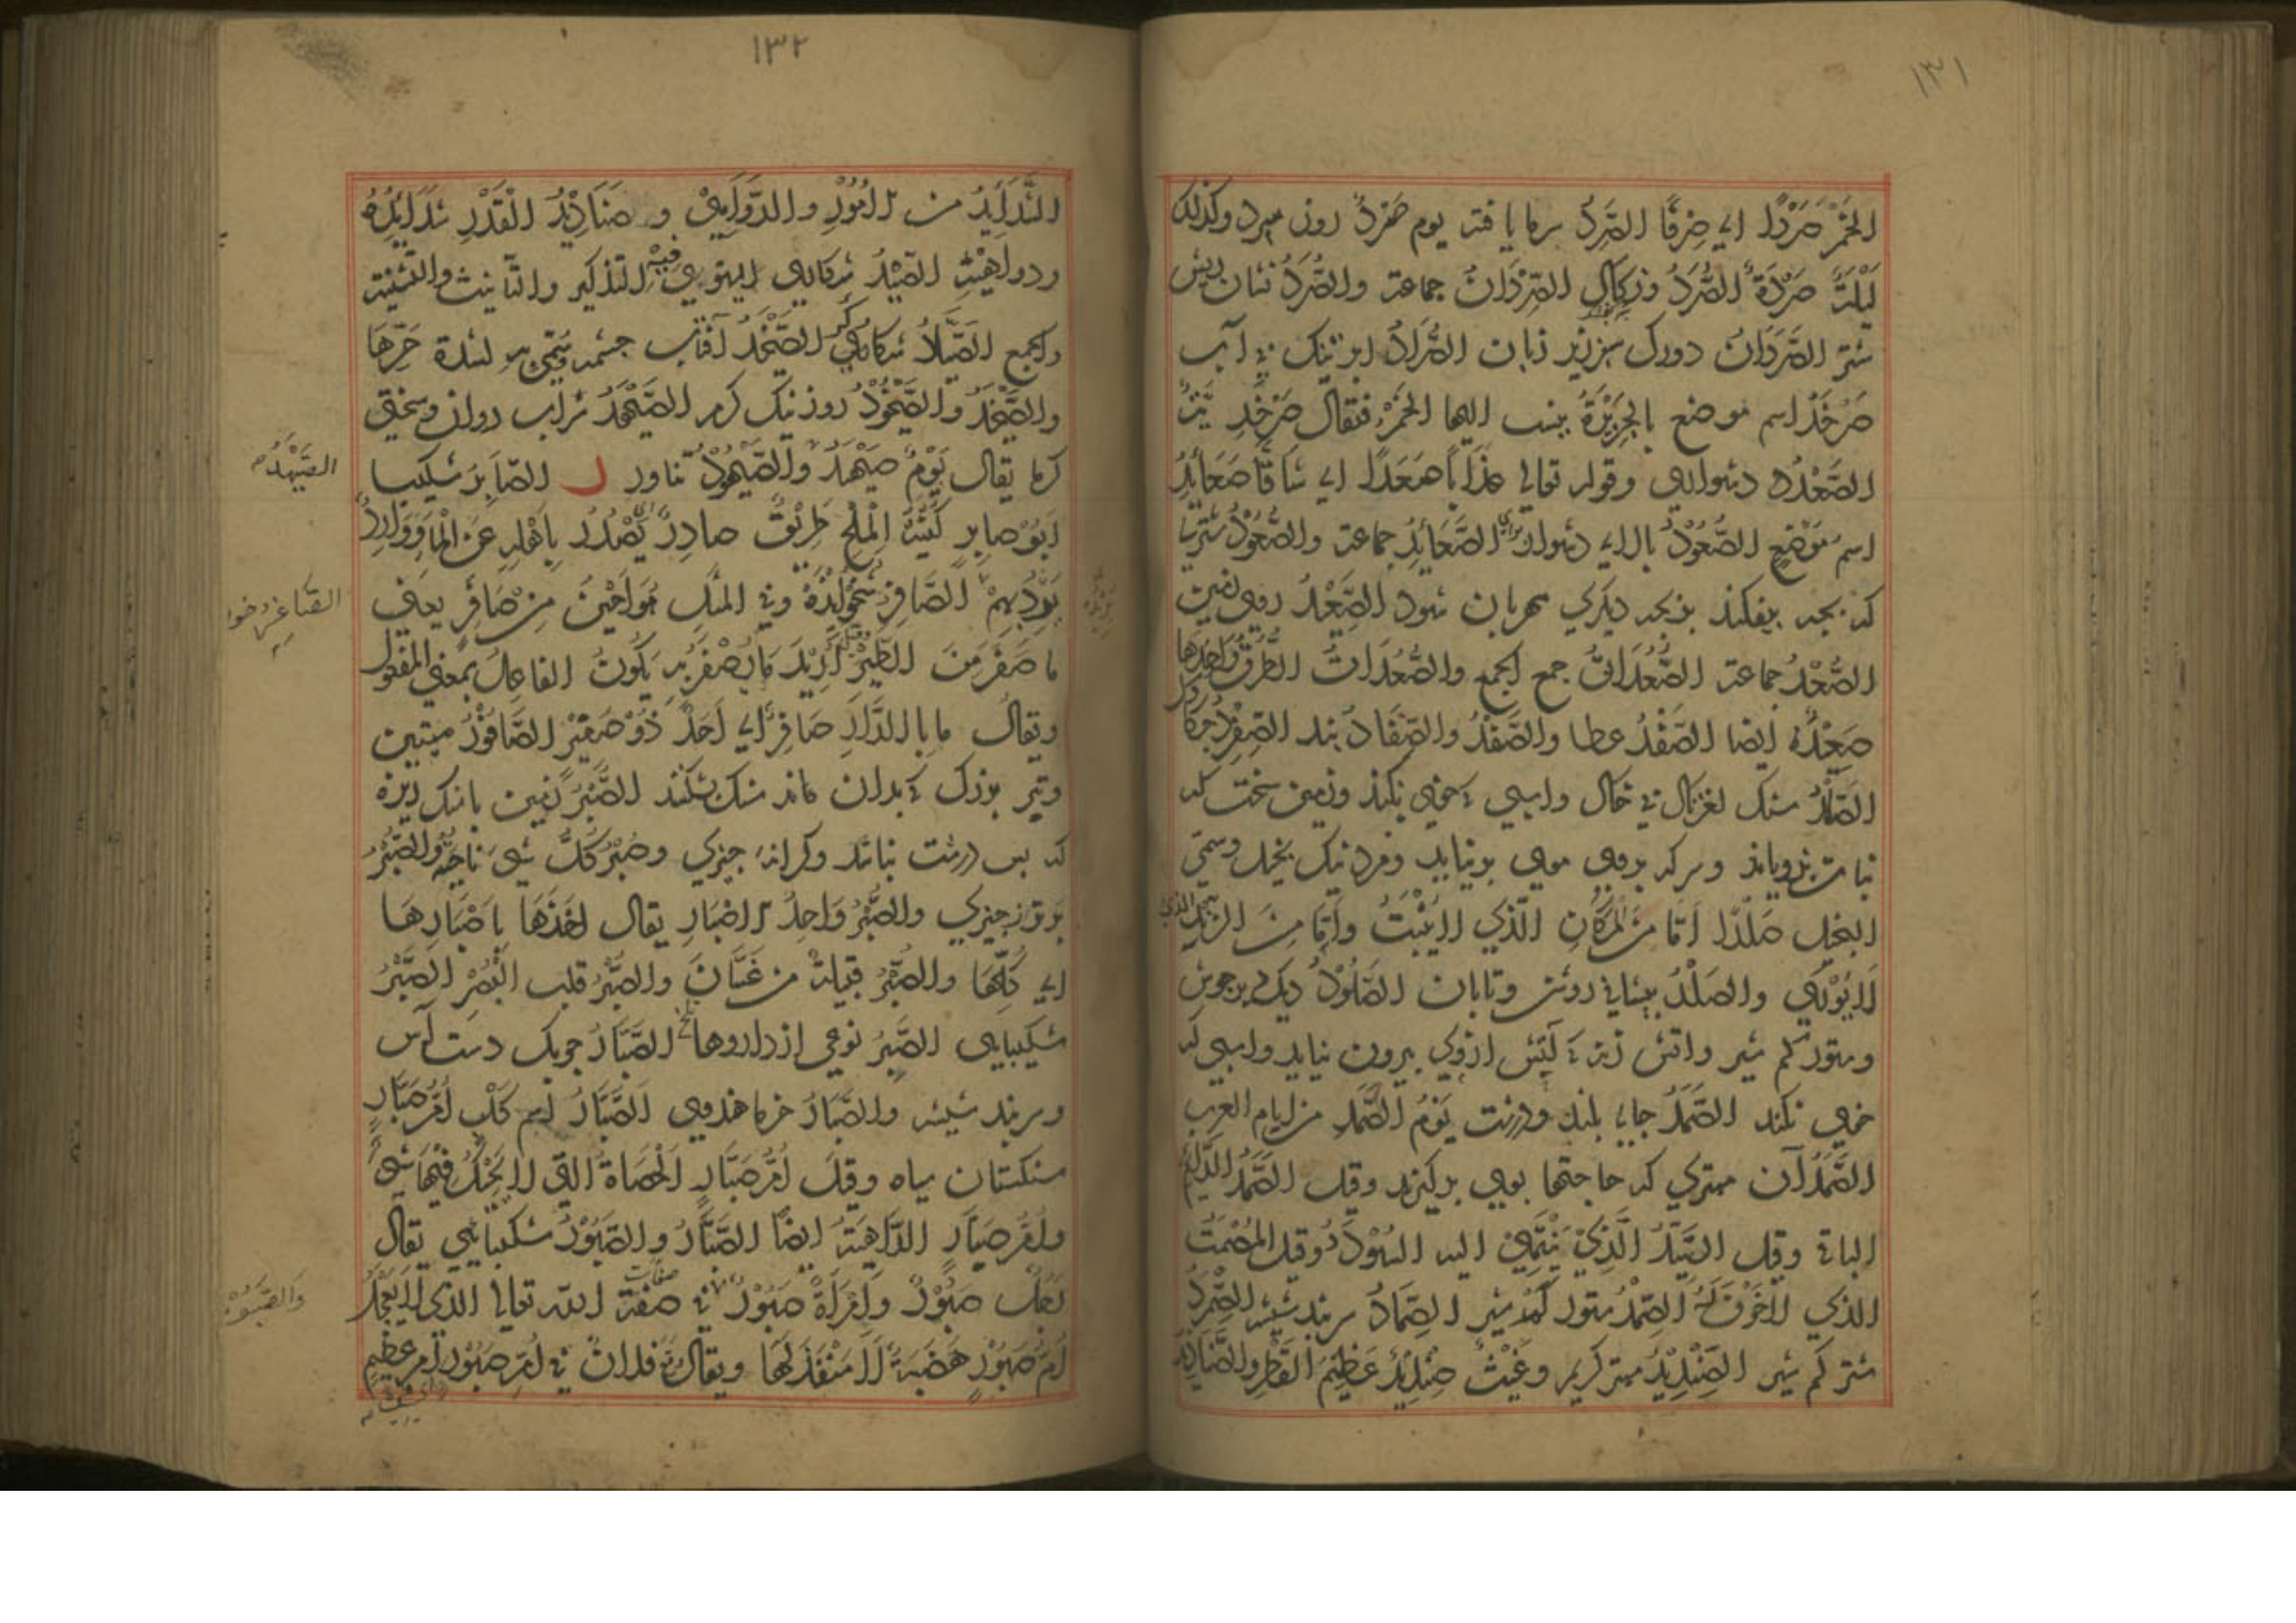 ١٣١
الخَمْرَ صَرْدًا اي صِرْفًا الصَّرِدُ سرما یافته یوم صَرِدٌ روزی سرد وكذلك
لَيْلَةٌ صَرْدَةٌ الصُّرَدُ الصِّرْدَانُ جماعة والصُّرَدُ نشان ریش
شتر الصُّرَدَانُ دو رگ سبز زیر زبان الصُّرَّادُ ابر تنک بی آب
صَرْخَدُ اسم موضع بالجَزِيْرَةِ ينسب اليها الخَمْرُ فيقال صَرْخَدِيَّةٌ
الصَّعَدُ دشواری وقوله تعالى عَذَابًا صَعَدًا اي شَاقًّا صَعَائِدُ
اسم مَوْضِعٍ الصَّعُوْدُ بالای دشوار الصَّعَائِدُ جماعة والصَّعُوْدُ شتری
که بچه بیفکند بر بچه دیگری مهربان شود الصَّعِيْدُ روی زمین
الصُّعُدُ جماعة الصُّعُدَاتُ جمع الجمع والصُّعُدَاتُ الطُّرُقُ وَاحِدُهَا
صَعِيْدٌ ايضا الصَّفَدُ عطا والصَّفَدُ والصِّفَادُ بند الصِّفْرِدُ
الصَّلْدُ سنک لغزنان بی خاک واسپی که خوی نکند وزمین سخت که
نبات نرویاند وسر که بروی موی برنیاید ومرد نیک بخیل وسمي
البخيل صَلْدًا اِمَّا مِنَ المَكَانِ الَّذِي لا يُنْبِتُ وَاِمَّا مِنَ الزَّنْدِ الذي
لَا يُوْرِي والصَّلْدُ پیشانی روشن وتابان الصَّلُوْدُ دیک دیر جوش
وستور کم شیر واتش زنه که آتش ازوی بیرون نیاید واسپی که
خوی نکند الصَّمْدُ جای بلند ودرشت يَوْمُ الصَّمْدِ من ايام العرب
الصَّمَدُ آن مهتری که حاجتها بوی بر گیرند وقيل الصَّمَدُ الدَّائِمُ
الباقي وقيل السَّيِّدُ الَّذِي يَنْتَهِي اليه السُّوْدَدُ وقيل المُصْمَتُ
الذي لا جَوْفَ لَهُ الصِّمْدُ ستور کم شیر الصِّمَادُ سربند شیشه الصِّمْرِدُ
شتر کم شیر الصِّنْدِيْدُ مهتر کریم وغَيْثٌ صِنْدِيْدٌ عَظِيْمُ القَطْرِ والصَّنَادِيْدُ
١٣٢
الشَّدَائِدُ من الامُوْرِ والدَّوَاهِيْ و صَنَادِيْدُ الْقَدَرِ شَدَائِدُهُ
ودواهيه الصَّيْدُ شکاری يستوي فِيْهِ التذكير والتأنيث والتثنية
والجمع الصَّيْخَدُ آفتاب چشمه وسُمِّي بِهِ لشدة حَرِّهَا
والصَّيْخَدُ والصَّيْخُوْدُ روز نیک کرم الصَّيْهَدُ سراب روان وسختی
کرما يقال يَوْمٌ صَيْهَدٌ والصَّيْهُوْدُ تناور ر الصَّابِرُ شکیبا
اَبُوْ صَابِرٍ كُنْيَةُ الْمِلْحِ طَرِيْقٌ صَادِرٌ اي يَصْدُرُ بِاَهْلِهِ عَنِ الْمَاءِ وَوَارِدٌ
يَرِدُ بِهِمْ الصَّافِرُ وفي المثل هُوَ اَجْبَنُ مِنْ صَافِرٍ يعني
ما صَفَرَ مِنَ الطَّيْرِ وقيل اُرِيْدَ مَا يُصْفَرُ بِهِ يَكُوْنُ الفاعِلُ بمعني المفعول
ويقال ما بالدَّارِ صَافِرٌ اي اَحَدٌ ذُوْ صَفِيْرٍ الصَّاقُوْرُ میتین
وتبر بزرک که بدان سنک شکنند الصَّبِرُ زمین باسنک ریزه
که بس درشت نباشد وکرانه چیزی وصُبْرُ كُلِّ شَيْءٍ نَاحِيَتُهُ والصُّبْرُ
چیزی والصُّبْرُ وَاحِدُ الاصْبَارِ يقال اَخَذَهَا بِاَصْبَارِهَا
اي كُلِّهَا والصُّبْرُ قبيلة من غَسَّانَ والصُّبْرُ قلب البُصْرِ الصَّبْرُ
شکیبایی الصَّبِرُ نوعی از داروها تلخ الصُّبَارُ چوبک دست آس
وسربند شیشه والصُّبَارُ خرما هندوی الصَّبَّارُ اسم كَلْبٍ اُمُّ صَبَّارٍ
سنکستان سیاه وقيل اُمُّ صَبَّارٍ الْحَصَاةُ التي لا يَحِيْكُ فِيْهَا شَيْءٌ
واُمُّ صَبَّارٍ الدَّاهِيَةُ ايضًا الصَّبَّارُ والصَّبُوْرُ شکیبایی يقال
رَجُلٌ صَبُوْرٌ وَاِمْرَأَةٌ صَبُوْرٌ في صفة الله تعالى الذي لا يُعَجِّلُ
اُمُّ صَبُوْرٍ هَضْبَةٌ لَا مَنْفَذَ لَهَا ويقال وقع فلان في اُمِّ صَبُوْرٍ اَمْرٍ عَظِيْمٍ
الصَّيْهَدُ
والصَّبُوْرُ